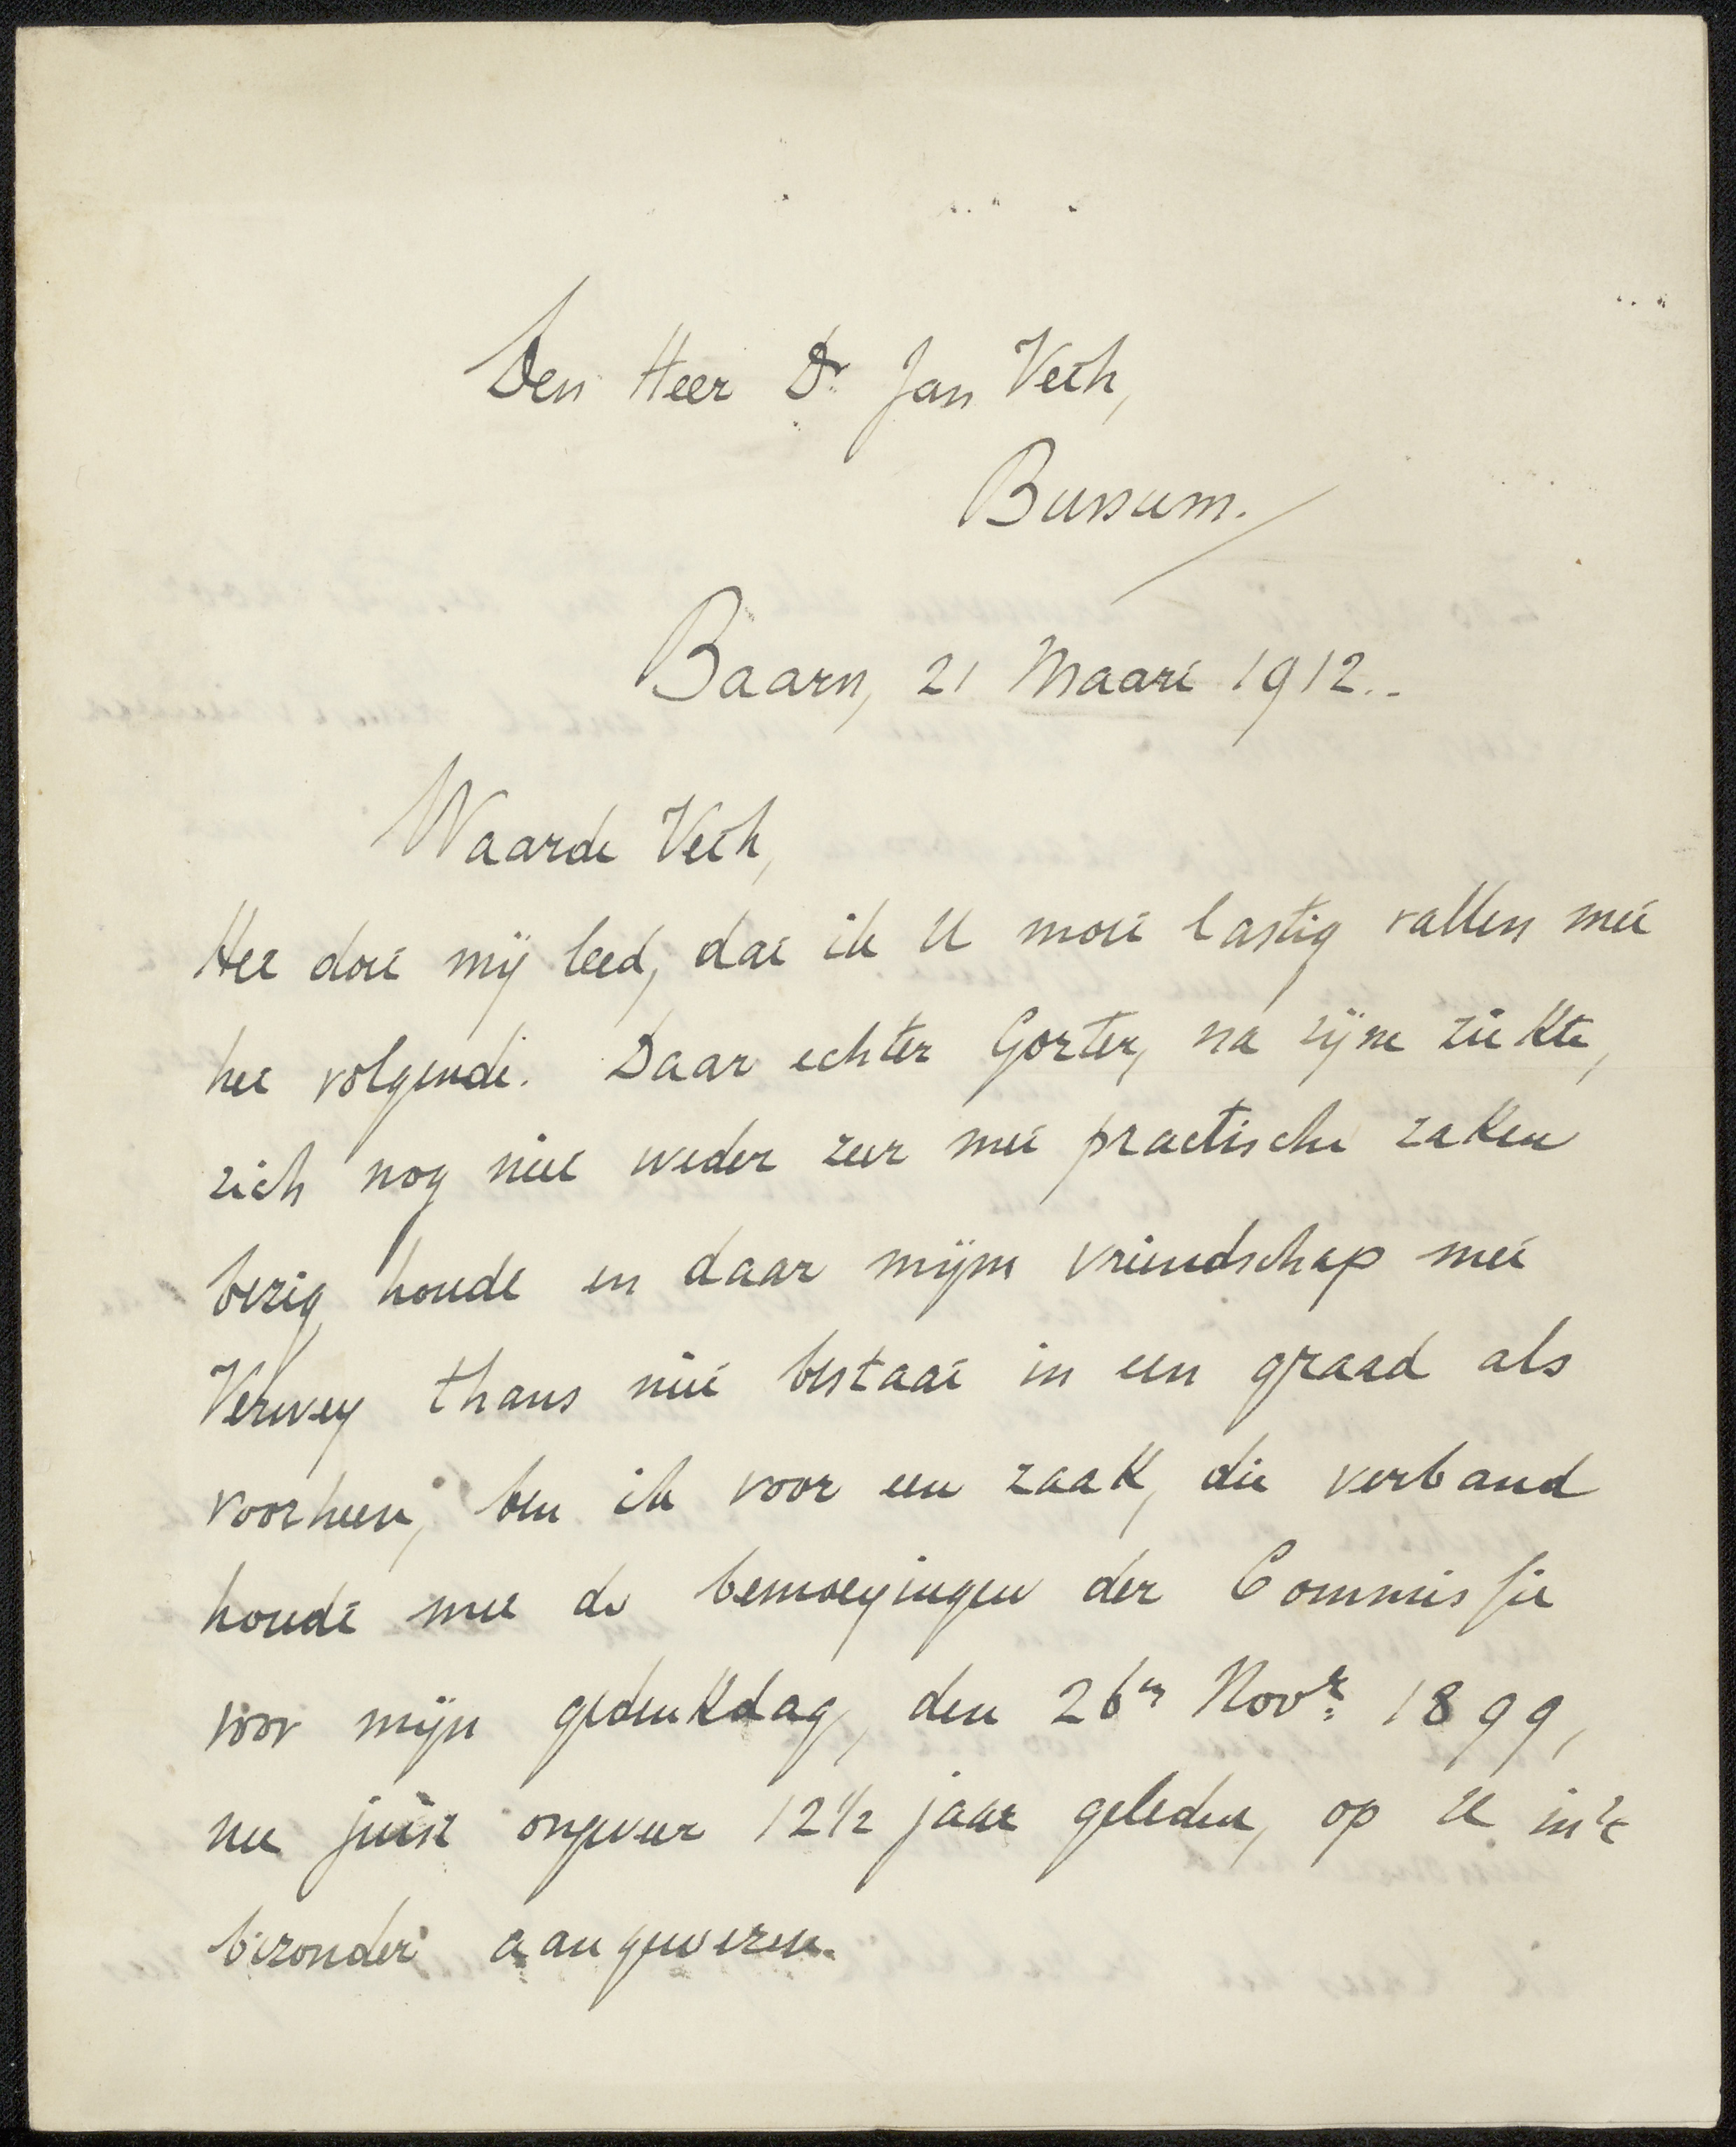 Den Heer Dr Jan Veth,
Bussum.
Baarn, 21 Maart 1912.
Waarde Veth,
Het doet mij leed, dat ik U moet lastig vallen met
het volgende. Daar echter Gorter, na zijne ziekte,
zich nog niet weder zeer met practische zaken
bezig houdt en daar mijne vriendschap met
Verwey thans niet bestaat in een graad als
voorheen, ben ik voor een zaak, die verband
houdt met de bemoeyingen der Commissie
voor mijn gedenkdag, den 26n Novr. 1899,
nu juist ongeveer 12½ jaar geleden, op U in 't
bizonder aangewezen.